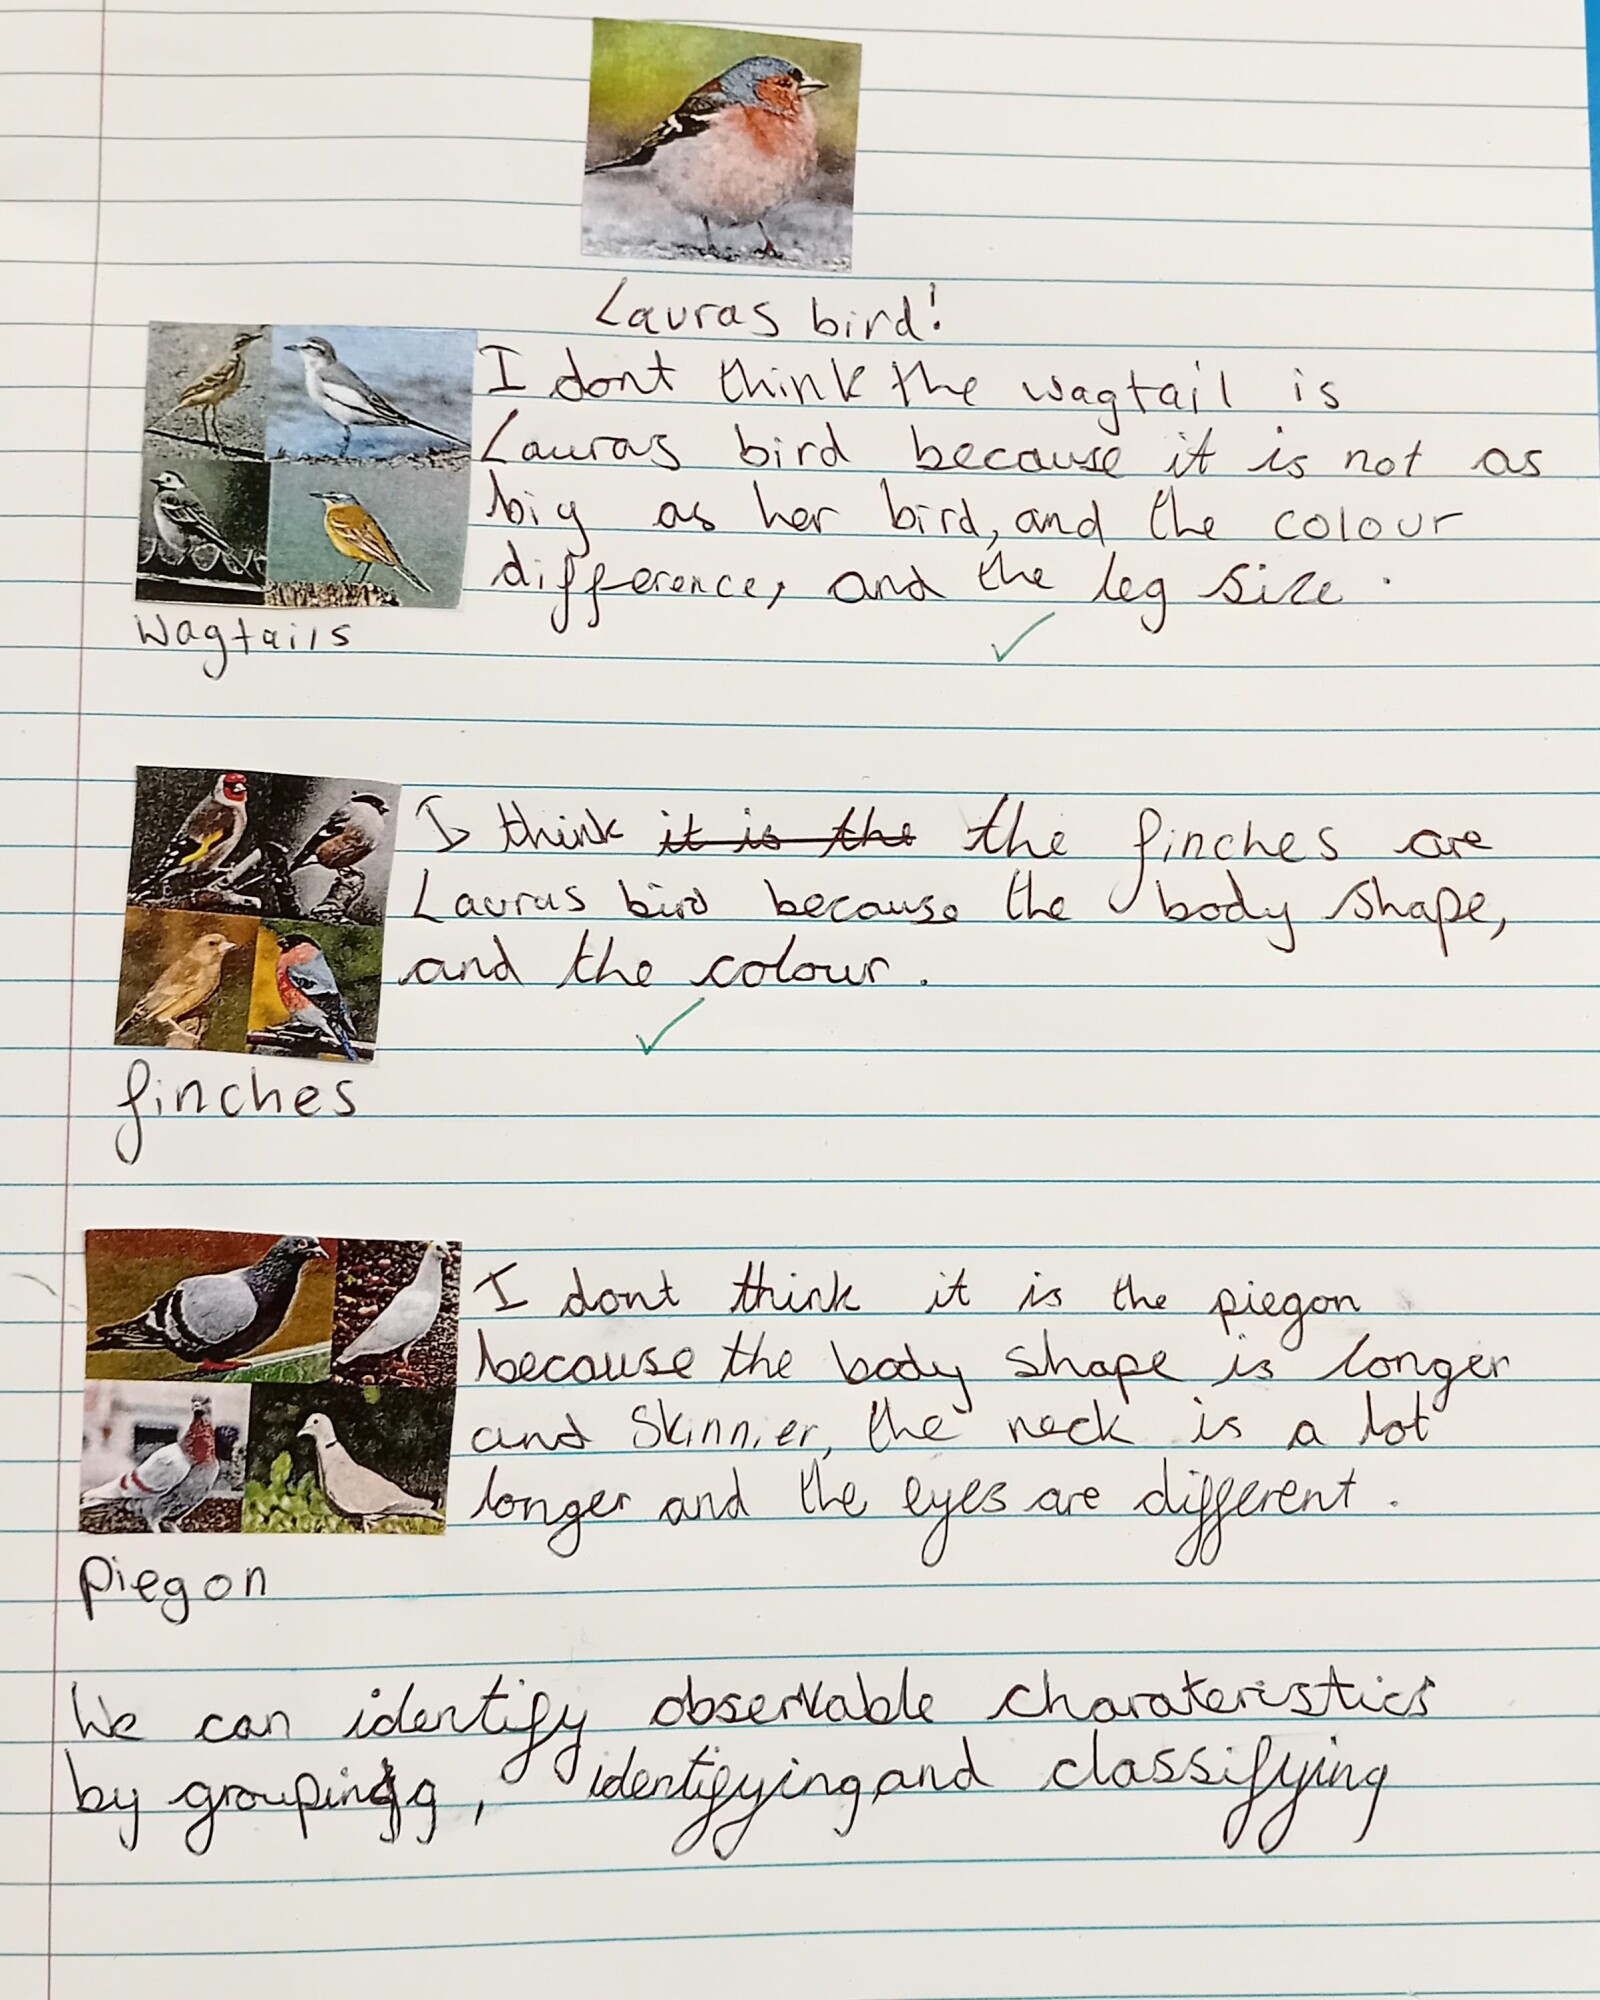 Lauras bird!
I dont think the wagtail is
Lauras bird because it is not as
big as her bird, and the colour
difference, and the leg size.
Wagtails
I think it is the the finches are
Lauras bird because the body shape,
and the colour.
finches
I dont think it is the piegon
because the body shape is longer
and skinnier, the neck is a lot
longer and the eyes are different.
Piegon
We can identify observable charateristics
by grouping, identifying and classifying